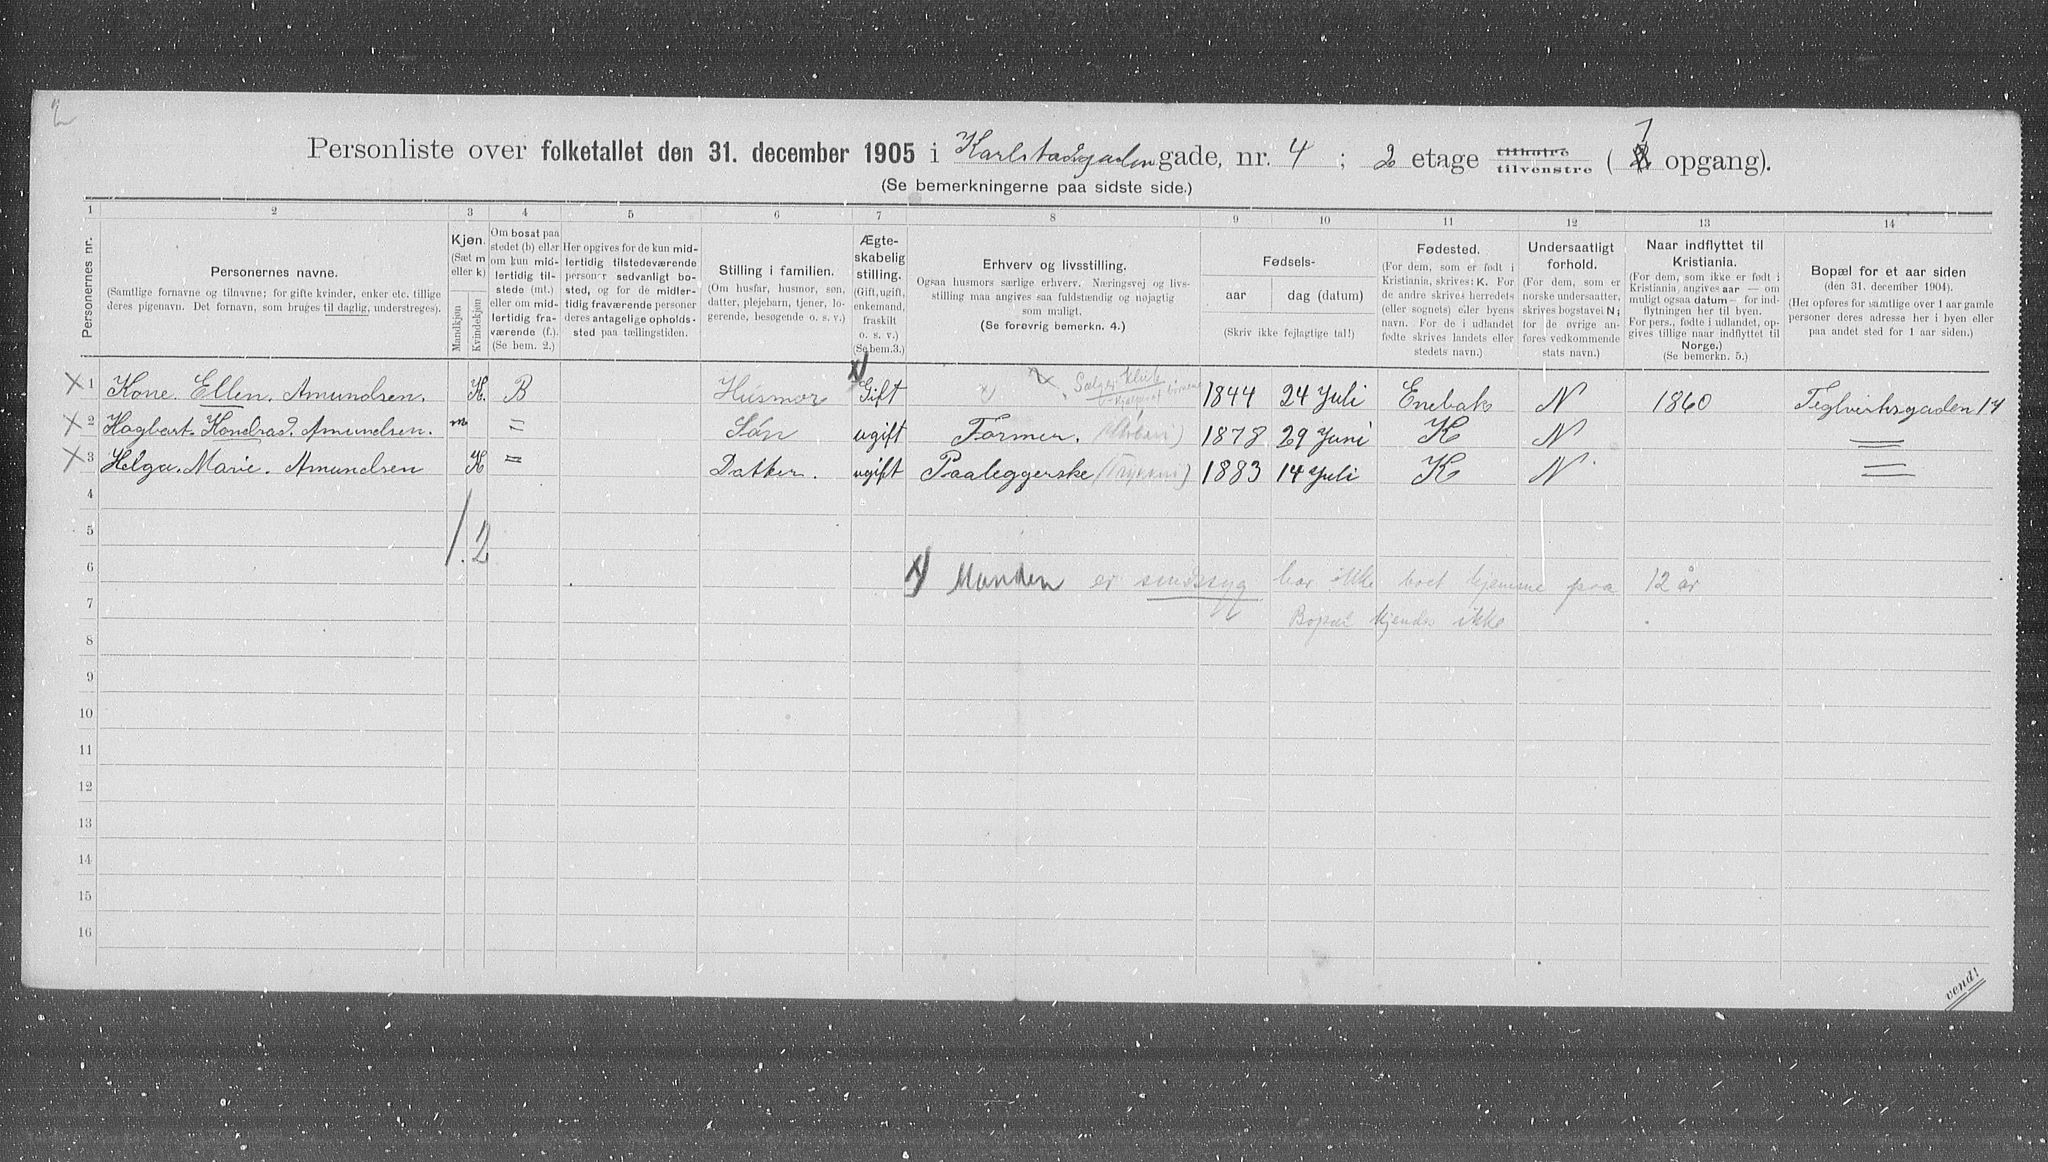 2
Personliste over folketallet den 31. december 1905 i Karlstadgaden gade, nr. 4 ; 2 etage tilhøire tilvenstre ( 1 opgang).
(Se bemerkningerne paa sidste side.)
1 2 3 4 5 6 7 8 9 10 11 12 13 14
Personernes nr.
Personernes navne.
(Samtlige fornavne og tilnavne; for gifte kvinder, enker etc. tillige
deres pigenavn. Det fornavn, som bruges til daglig, understreges).
Kjøn.
(Sæt m
eller k)
Mandkjøn
Kvindekjøn
Om bosat paa
stedet (b) eller
om kun mid-
lertidig til-
stede (mt.)
eller om mid-
lertidig fra-
værende (f.).
(Se bem. 2.)
Her opgives for de kun mid-
lertidig tilstedeværende
personer sedvanligt bo-
sted, og for de midler-
tidig fraværende personer
deres antagelige opholds-
sted paa tællingstiden.
Stilling i familien.
(Om husfar, husmor, søn,
datter, plejebarn, tjener, lo-
gerende, besøgende o. s. v.)
Ægte-
skabelig
stilling.
(Gift, ugift,
enkemand,
fraskilt
o. s. v.)
(Se bem.3.)
Erhverv og livsstilling.
Ogsaa husmors særlige erhverv. Næringsvej og livs-
stilling maa angives saa fuldstændig og nøjagtig
som muligt.
(Se forøvrig bemerkn. 4.)
Fødsels-
aar dag (datum)
(Skriv ikke fejlagtige tal!)
Fødested.
(For dem, som er født i
Kristiania, skrives: K. For
de andre skrives herredets
(eller sognets) eller byens
navn. For de i udlandet
fødte skrives landets eller
stedets navn.)
Undersaatligt
forhold.
(For dem, som er
norske undersaatter,
skrives bogstavet N;
for de øvrige an-
føres vedkommende
stats navn.)
Naar indflyttet til
Kristiania.
(For dem, som ikke er født i
Kristiania, angives aar — om
muligt ogsaa datum — for ind-
flytningen her til byen.
For pers., fødte i udlandet, op-
gives tillige naar indflyttet til
Norge.)
(Se bemerkn. 5.)
Bopæl for et aar siden
(den 31. december 1904).
(Her opføres for samtlige over 1 aar gamle
personer deres adresse her i byen eller
paa andet sted for 1 aar siden.)
X 1 Kone. Ellen. Amundsen. K. B Husmor x) Gift x) 1844 24 Juli Enebak N 1860 Teglverksgaden 14
X 2 Hagbart. Kondrad. Amundsen. m = Søn ugift Former. 1878 29 Juni K N =
X 3 Helga. Marie. Amundsen K = Datter. ugift Paaleggerske 1883 14 Juli K N =
4
5
1. 2
6
x) Manden er sindssyg har ikke boet hjemme paa 12 år
7
Bopæl kjendes ikke
8
9
10
11
12
13
14
15
16
vend!